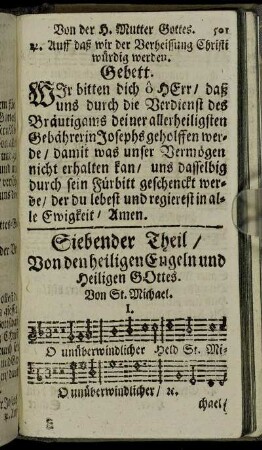 Von der H. Mutter Gottes. 501
℟. Auff daß wir der Verheissung Christi
würdig werden.
Gebett.
WIr bitten dich ô HErr / daß
uns durch die Verdienst des
Bräutigams deiner allerheiligsten
Gebährerin Josephs geholffen wer-
de / damit was unser Vermögen
nicht erhalten kan / uns dasselbig
durch sein Fürbitt geschenckt wer-
de / der du lebest und regierest in al-
le Ewigkeit / Amen.
Siebender Theil /
Von den heiligen Engeln und
Heiligen GOttes.
Von St. Michael.
I.
O unüberwindlicher Held St. Mi-
O unüberwindlicher / ꝛc.
chael /